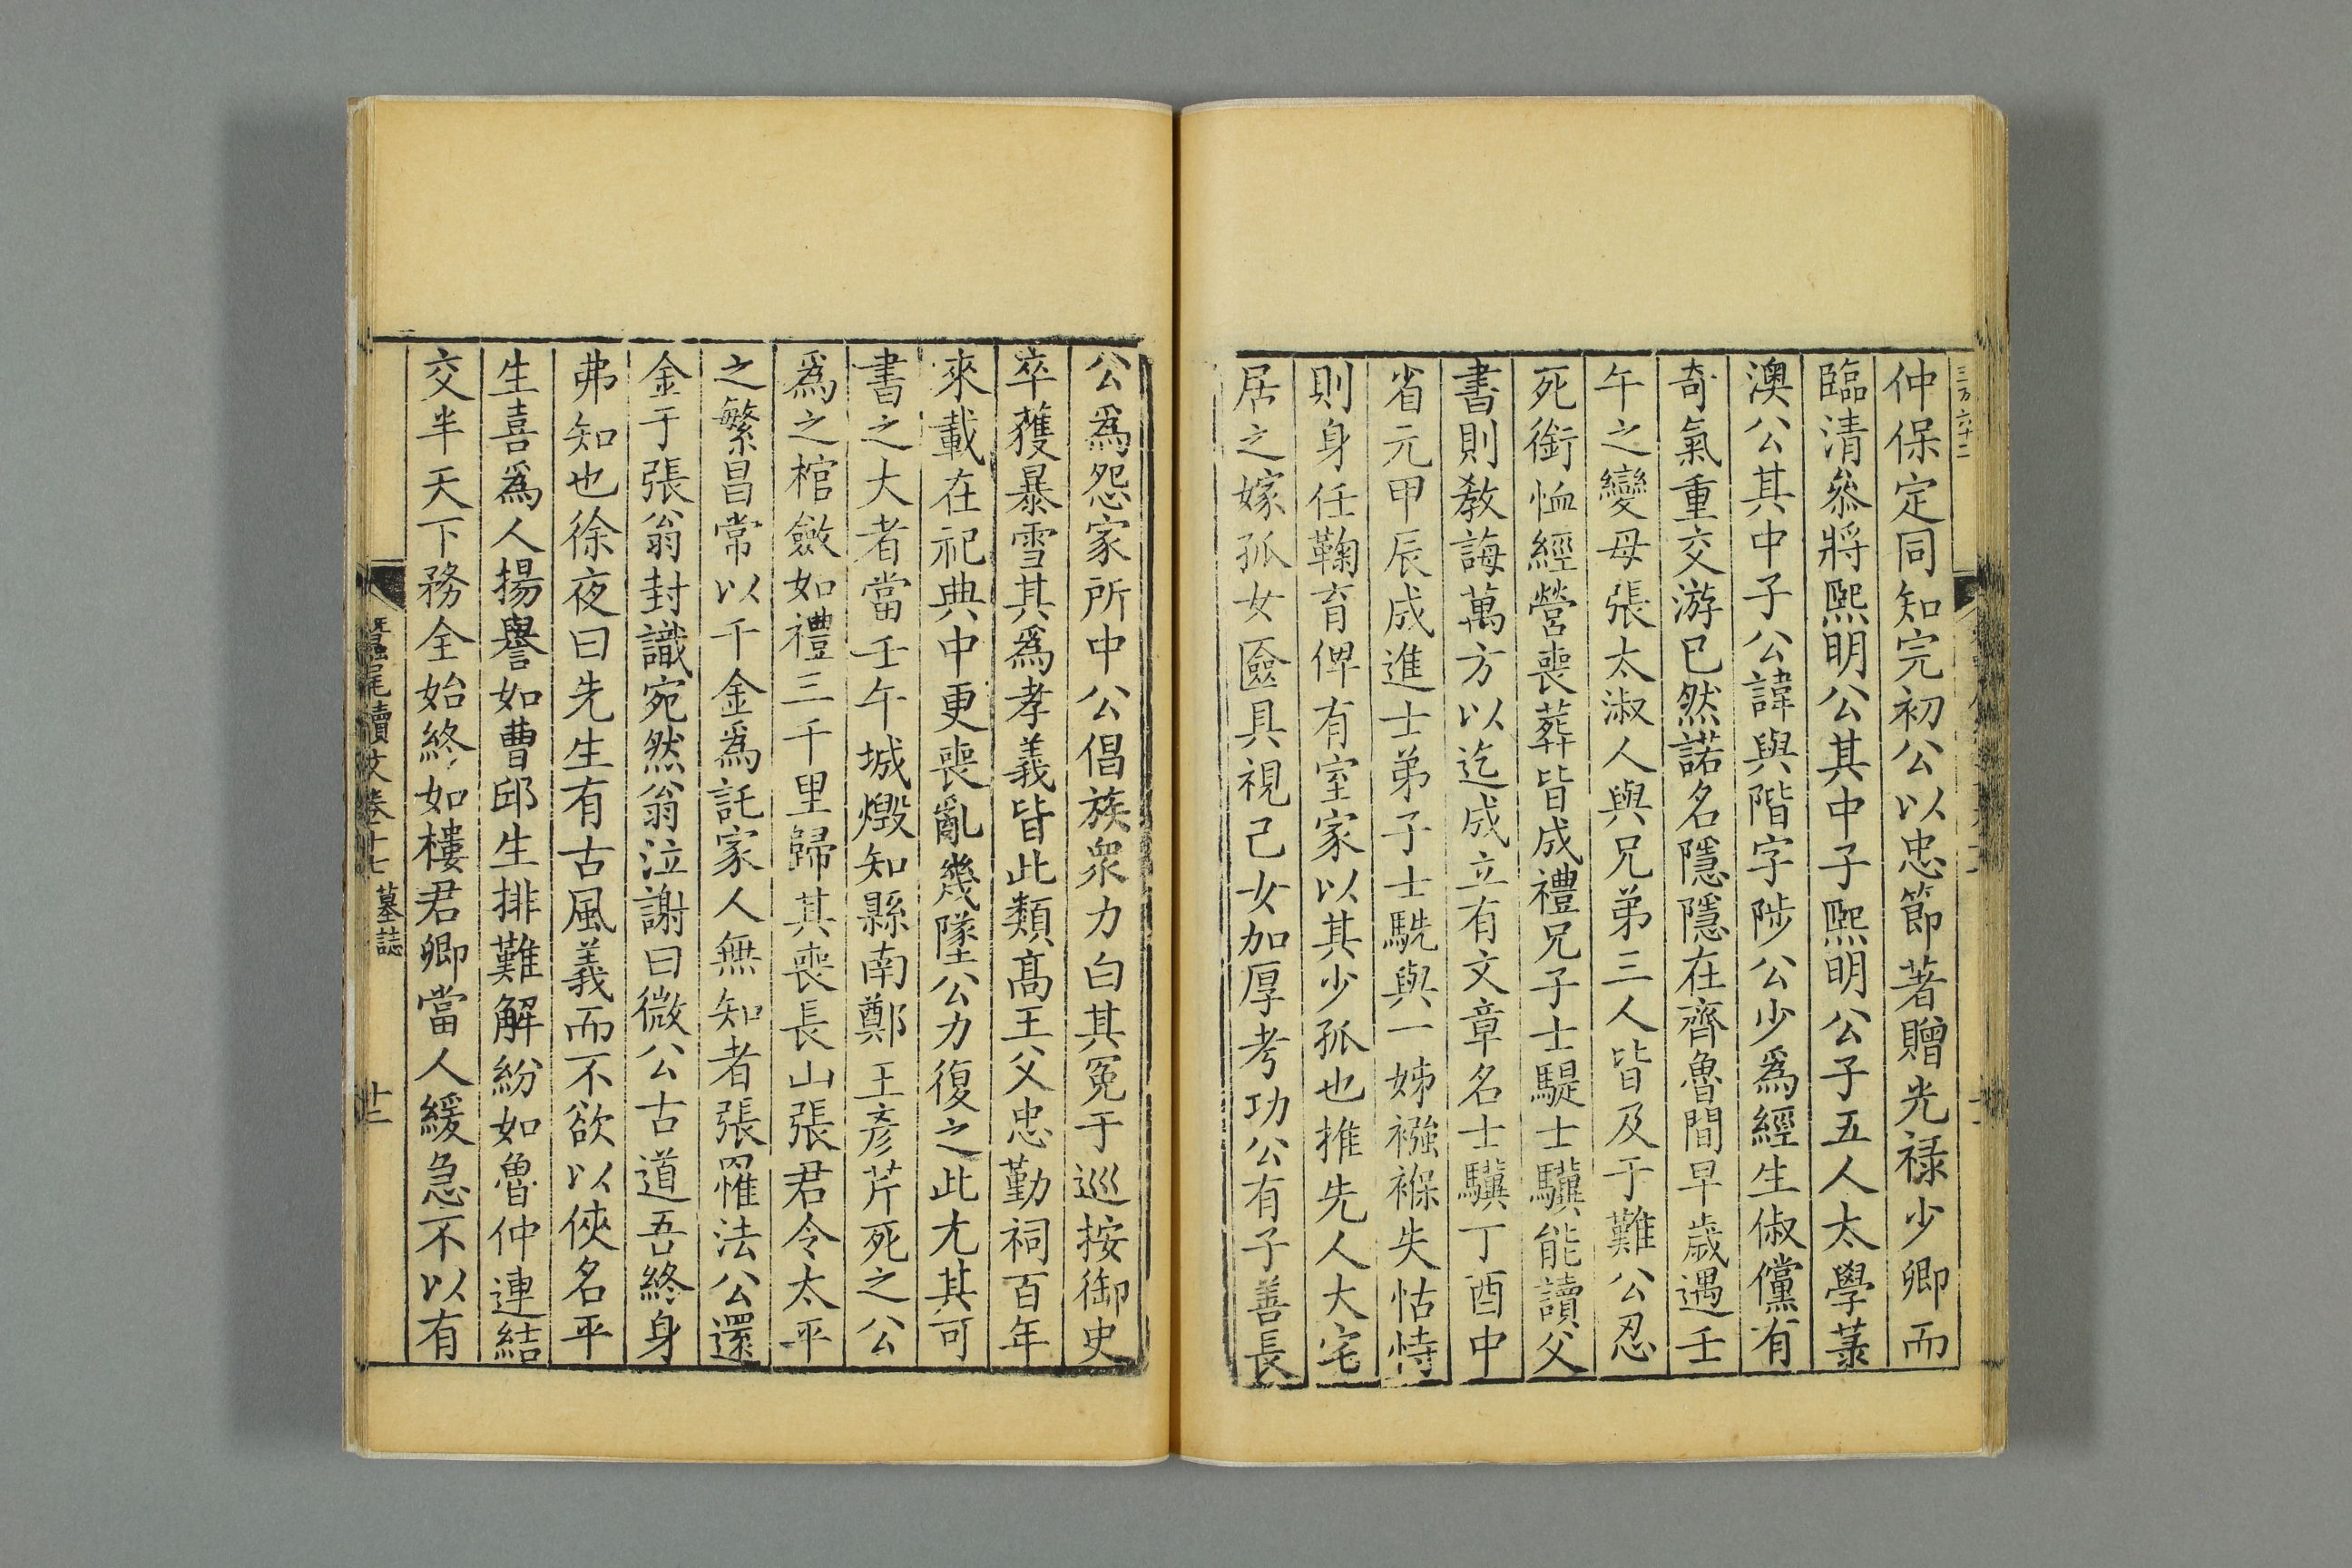 三万六十二
仲保定同知完初公以忠節著贈光祿少卿而
臨清叅將熙明公其中子熙明公子五人太學菉
澳公其中子公諱與階字陟公少爲經生俶儻有
奇氣重交游已然諾名隱隱在齊魯間早歳遇壬
午之變母張太淑人與兄弟三人皆及于難公忍
死銜恤經營喪葬皆成禮兄子士騠士驥能讀父
書則敎誨萬方以迄成立有文章名士驥丁酉中
省元甲辰成進士弟子士駪與一姊襁褓失怙恃
則身任鞠育俾有室家以其少孤也推先人大宅
居之嫁孤女匳具視己女加厚考功公有子善長
公爲怨家所中公倡族衆力白其寃于巡按御史
卒獲暴雪其爲孝義皆此類高王父忠勤祠百年
來載在祀典中更喪亂幾墜公力復之此尤其可
書之大者當壬午城燬知縣南鄭王彥芹死之公
爲之棺斂如禮三千里歸其喪長山張君令太平
之繁昌常以千金爲託家人無知者張罹法公還
金于張翁封識宛然翁泣謝曰微公古道吾終身
弗知也徐夜曰先生有古風義而不欲以俠名平
生喜爲人揚譽如曹邱生排難解紛如魯仲連結
交半天下務全始終如樓君卿當人緩急不以有
蠶尾續文卷十七 墓誌 十二